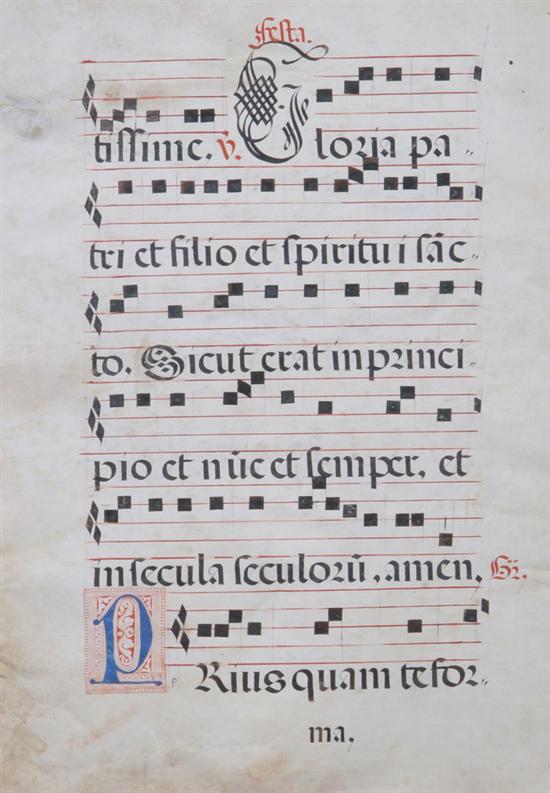 Festa.
tissime. ℣. Gloria pa-
tri et filio et spiritui sãc-
to. Sicut erat in princi-
pio et nũc et semper, et
in secula seculorũ, amen. Gr.
PRius quam te for-
ma,